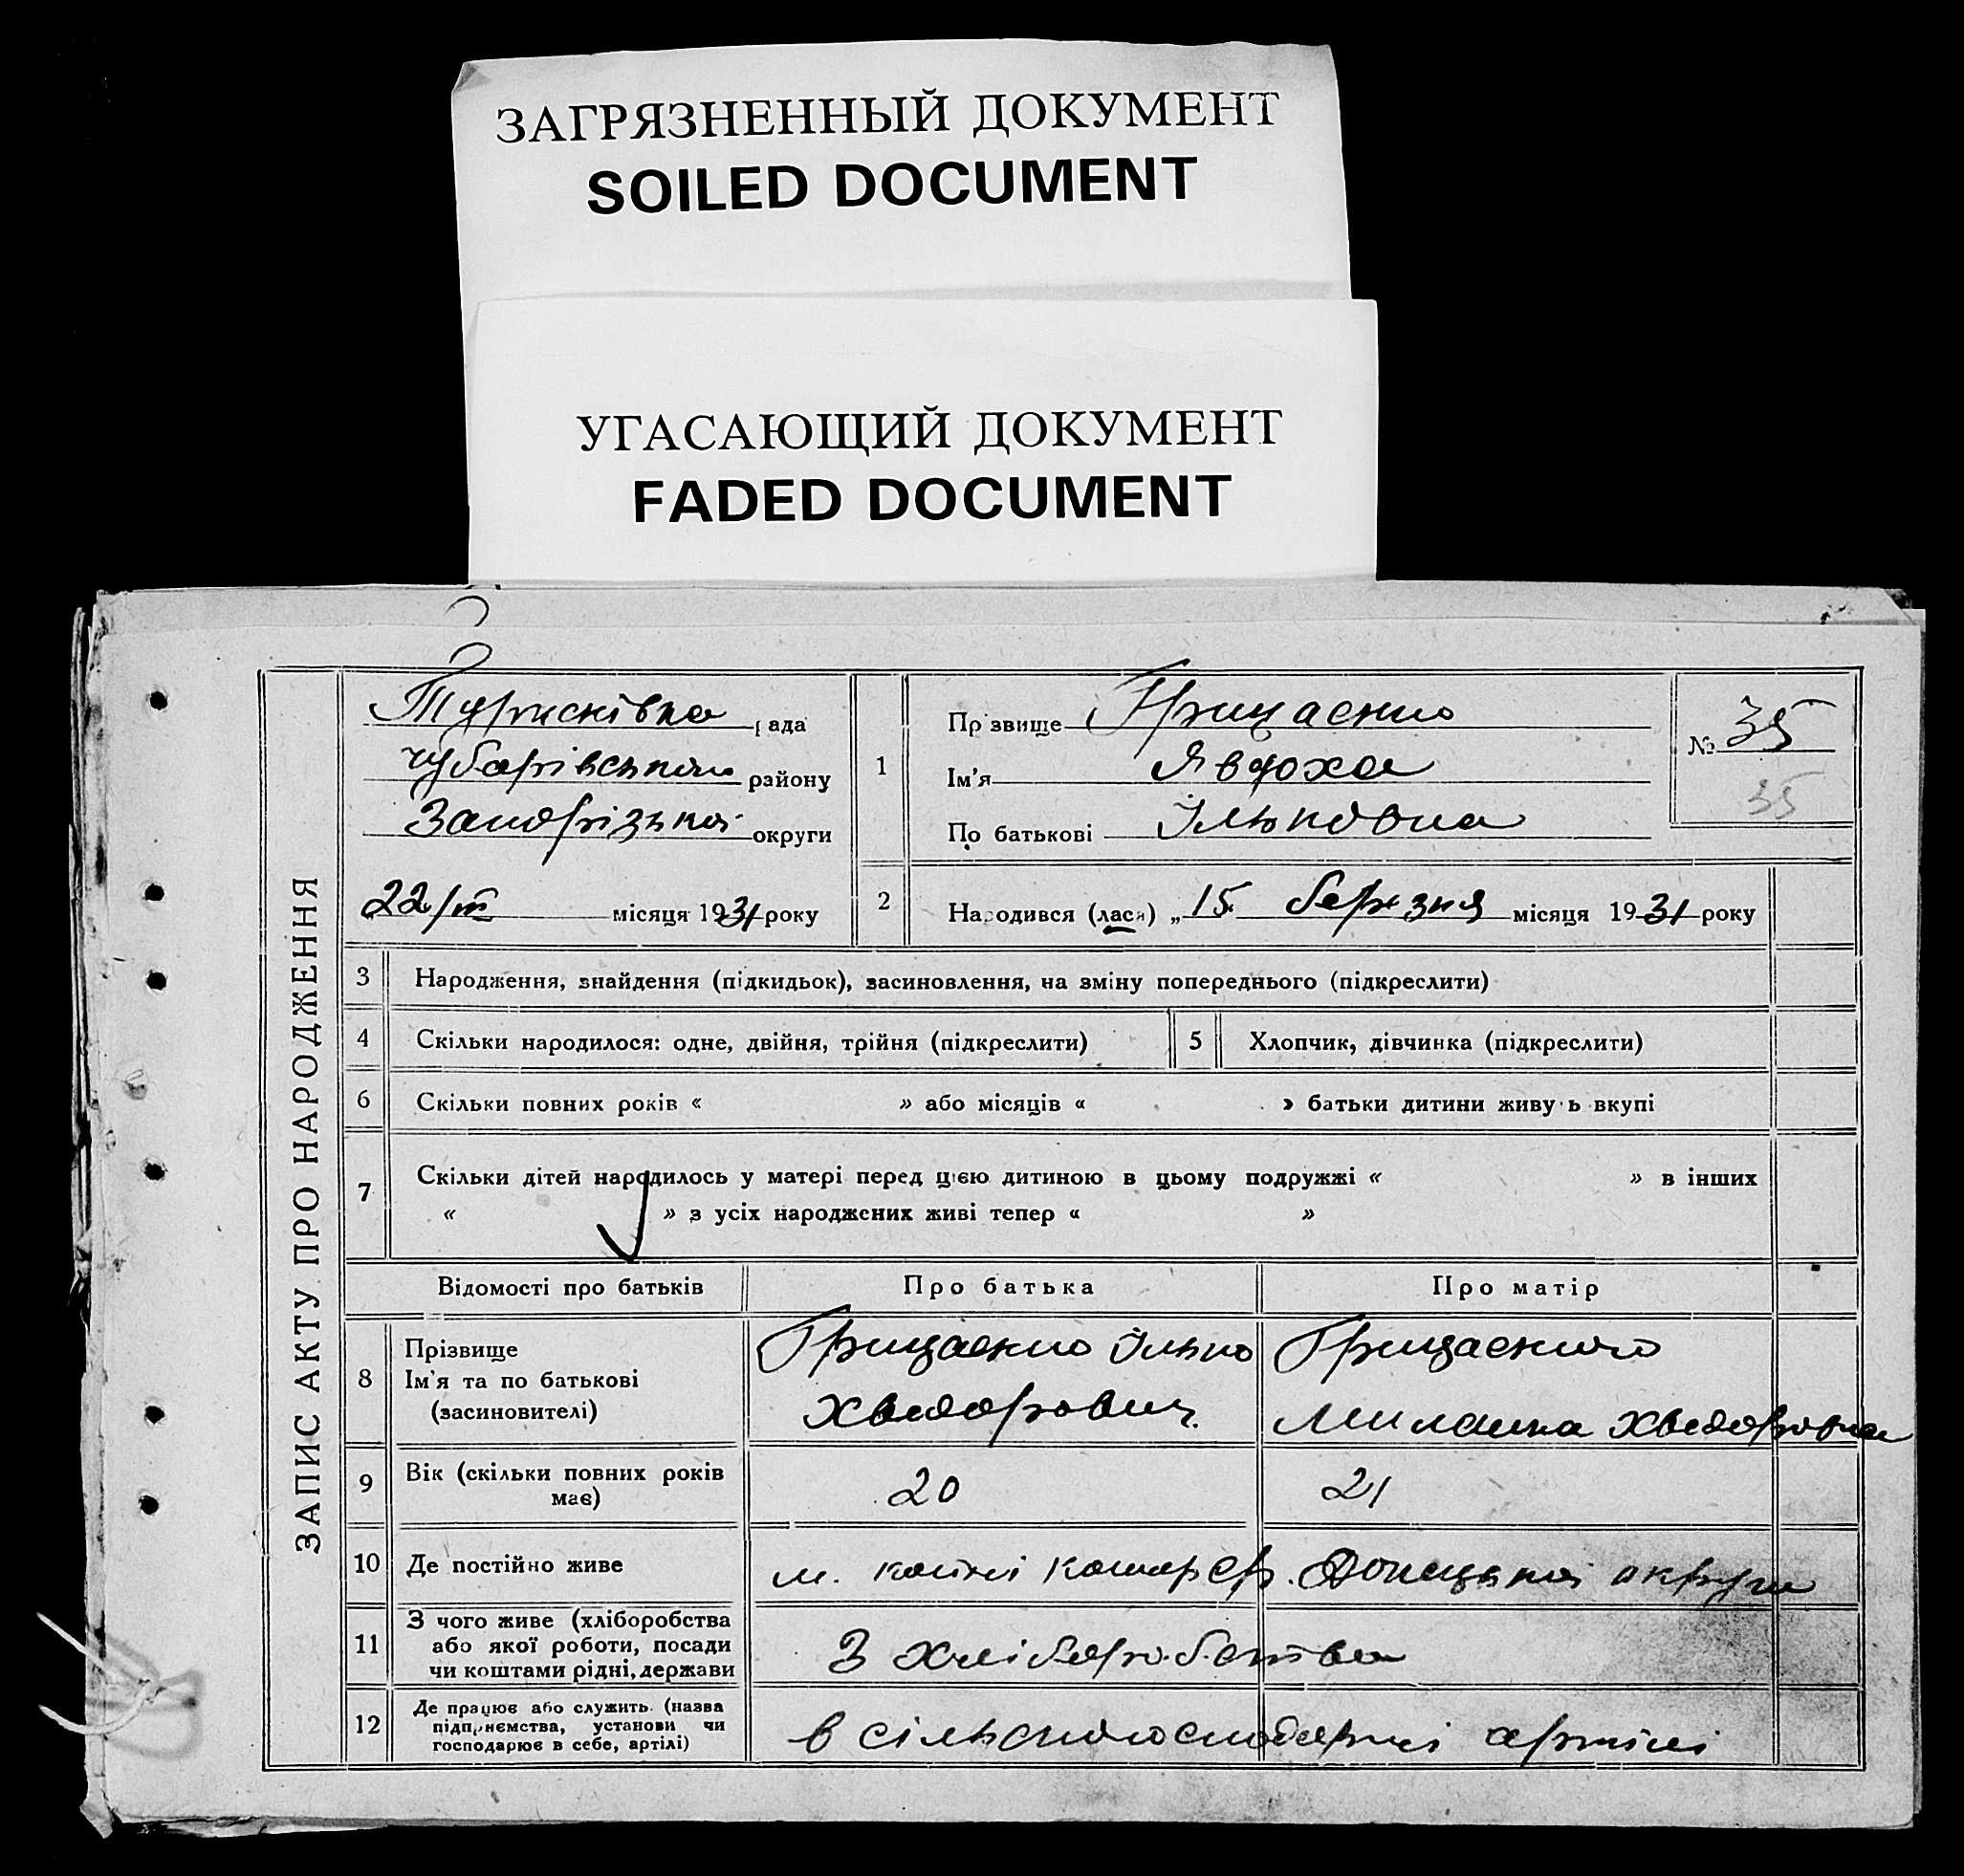 ЗАГРЯЗНЕННЫЙ ДОКУМЕНТ
SOILED DOCUMENT
УГАСАЮЩИЙ ДОКУМЕНТ
FADED DOCUMENT
ЗАПИС АКТУ ПРО НАРОДЖЕННЯ
рада
Чубарівського району
Запорізької округи
22/III місяця 1931 року
1
Прізвище Грицаенко
Ім'я Явдоха
По батькові Ільковна
№ 35
35
2 Народився (лася) „15 березня місяця 1931 року
3 Народження, знайдення (підкидьок), засиновлення, на зміну попереднього (підкреслити)
4 Скільки народилося: одне, двійня, трійня (підкреслити) 5 Хлопчик, дівчинка (підкреслити)
6 Скільки повних років « » або місяців « » батьки дитини живуть вкупі
7 Скільки дітей народилось у матері перед цією дитиною в цьому подружжі « » в інших
« » з усіх народжених живі тепер « »
Відомості про батьків Про батька Про матір
8 Прізвище
Ім'я та по батькові
(засиновителі)
Грицаенко Ілько
Хведорович
Грицаенкого
Милашка Хведоровна
9 Вік (скільки повних років
має)
20 21
10 Де постійно живе округи
11 З чого живе (хліборобства
або якої роботи, посади
чи коштами рідні, держави
З хліборобства
12 Де працює або служить (назва
підприємства, установи чи
господарює в себе, артілі)
в сільськогосподарчі артілі